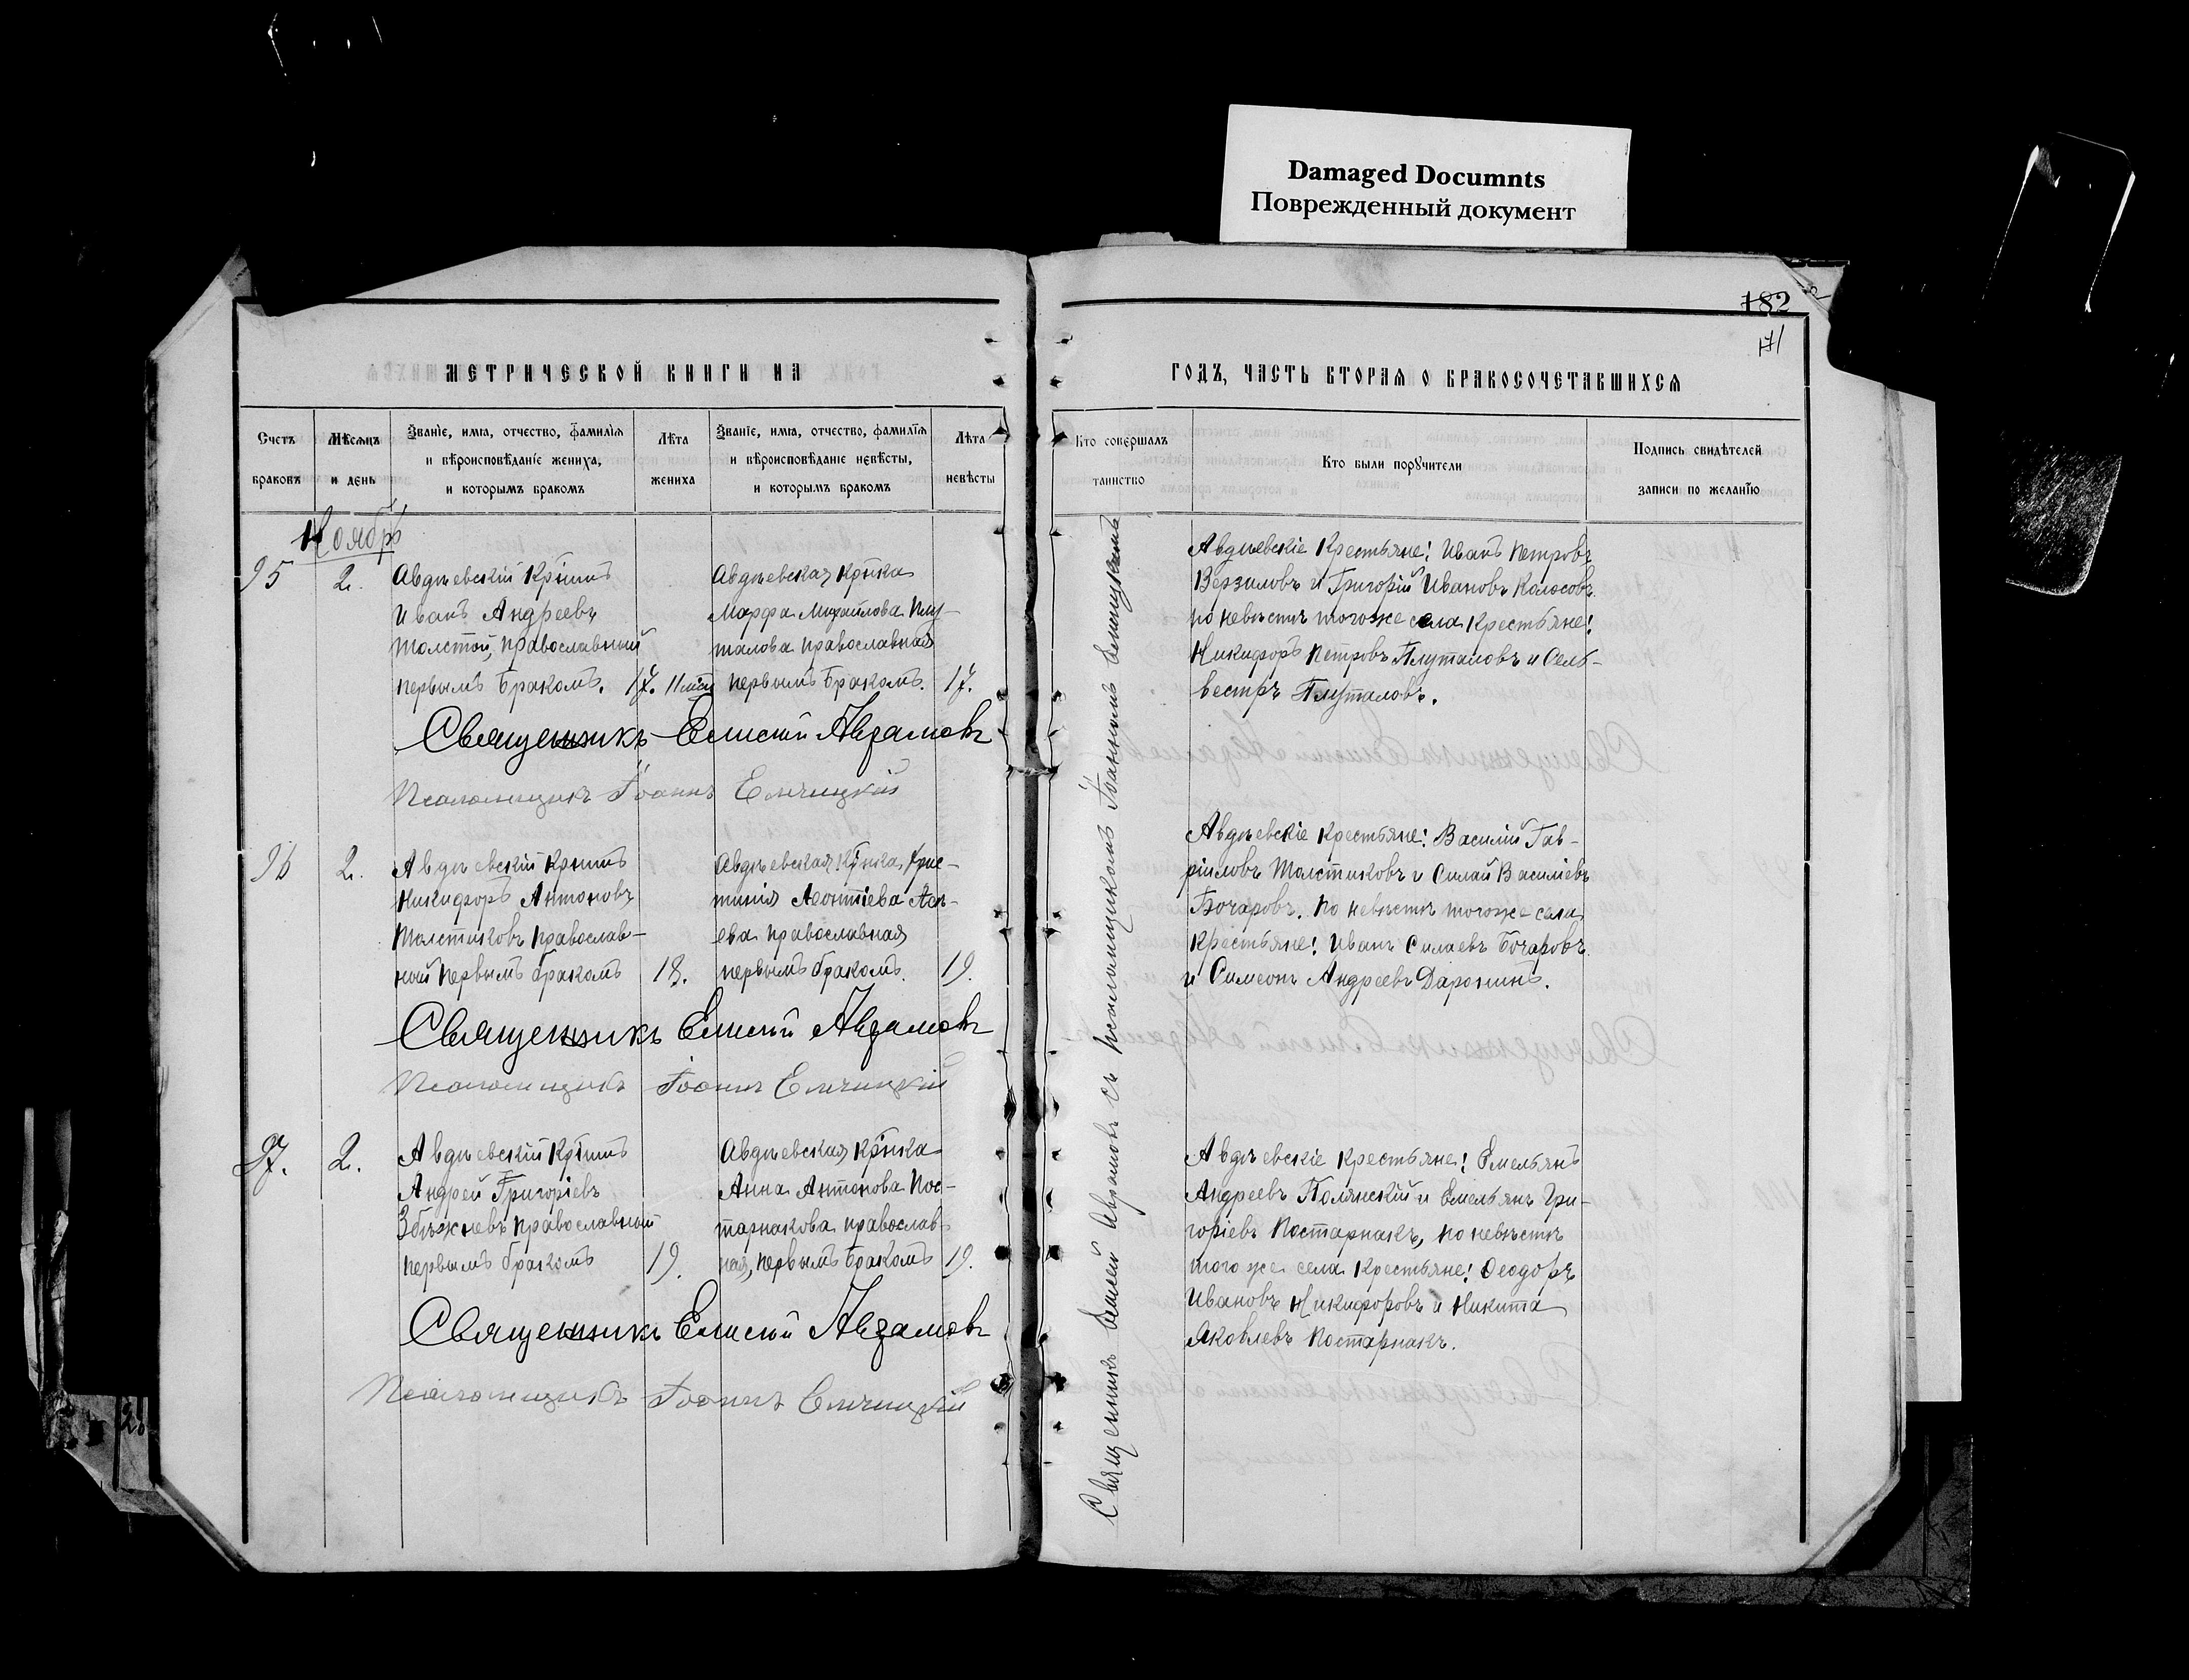 Damaged Documnts
Поврежденный документ
182
171
МЕТРИЧЕСКОЙ КНИГИ НА
ГОДЪ, ЧАСТЬ ВТОРАЯ О БРАКОСОЧЕТАВШИХСЯ
Счетъ браковъ
Мѣсяцъ и день
Званіе, имя, отчество, фамилія и вѣроисповѣданіе жениха, и которымъ бракомъ
Лѣта жениха
Званіе, имя, отчество, фамилія и вѣроисповѣданіе невѣсты, и которымъ бракомъ
Лѣта невѣсты
Кто совершалъ таинство
Кто были поручители
Подпись свидѣтелей записи по желанію
Ноябрь
95
2.
Авдѣевскій Кр̃инъ
Иванъ Андреевъ
Толстой, православный
первымъ бракомъ.
17. 11 мѣс
Авдѣевская Кр̃нка
Марфа Михайлова Плу-
талова православная
первымъ бракомъ.
17.
Священникъ Елисей Авзамовъ
Псаломщикъ Іоаннъ
Авдѣевскіе Крестьяне: Иванъ Петровъ
Верзиловъ и Григорій Ивановъ Колосовъ.
по невѣстѣ того же села Крестьяне:
Никифоръ Петровъ Плуталовъ и Сель-
вестръ Плуталовъ.
96
2.
Авдѣевскій Кр̃инъ
Никифоръ Антоновъ
Толстиковъ православ-
ный первымъ бракомъ
18.
Авдѣевская Кр̃нка, Хрис-
тинія Леонтіева Асѣ-
ева православная
первымъ бракомъ.
19.
Священникъ Елисей Авзамовъ
Псаломщикъ Іоаннъ
Авдѣевскіе Крестьяне: Василій Гав-
ріиловъ Толстиковъ и Силай Василіевъ
Бочаровъ. По невѣстѣ того же села
Крестьяне: Иванъ Силаевъ Бочаровъ
и Симеонъ Андреевъ Даронинъ.
97.
2.
Авдѣевскій Кр̃инъ
Андрей Григоріевъ
Збѣжневъ православный
первымъ бракомъ
19.
Авдѣевская Кр̃нка
Анна Антонова Пос-
тарнакова православ-
ная, первымъ бракомъ
19.
Священникъ Елисей Авзамовъ
Псаломщикъ Іоаннъ
Авдѣевскіе Крестьяне: Емельянъ
Андреевъ Полянскій и Емельянъ Гри-
горіевъ Постарнакъ, по невѣстѣ
того же села Крестьяне: Феодоръ
Ивановъ Никифоровъ и Никита
Яковлевъ Постарнакъ.
Священникъ Елисей Авзамовъ съ псаломщикомъ Іоанномъ